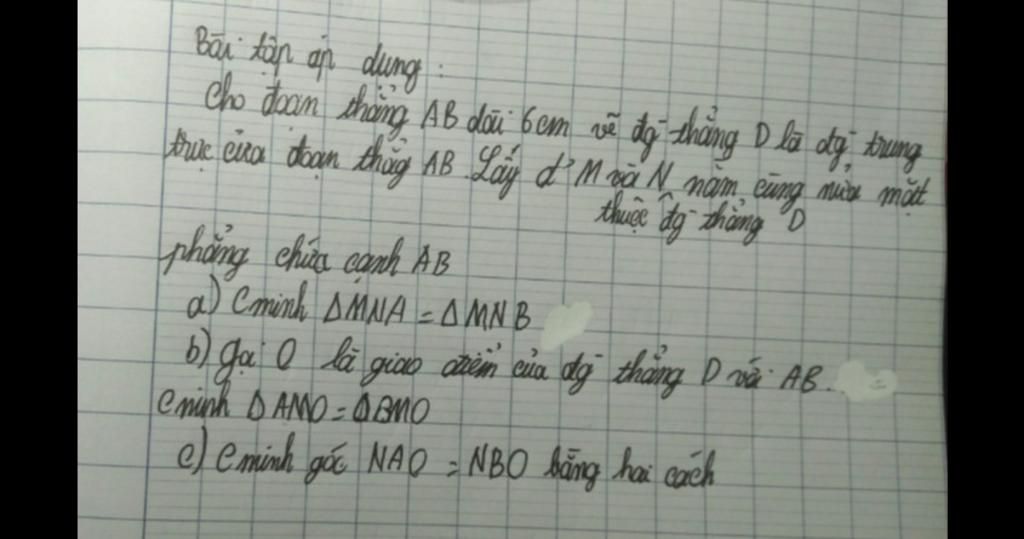 Bài tập áp dụng:
Cho đoạn thẳng AB dài 6cm vẽ đg thẳng D là đg trung
trực của đoạn thẳg AB. Lấy đ' M và N nằm cùng nửa mặt
thuộc đg thẳng D
phẳng chứa cạnh AB
a) Cminh ΔMNA = ΔMNB
b) Gọi O là giao điểm của đg thẳng D với AB.
Cminh ΔAMO = ΔBMO
c) Cminh góc NAO = NBO bằng hai cách